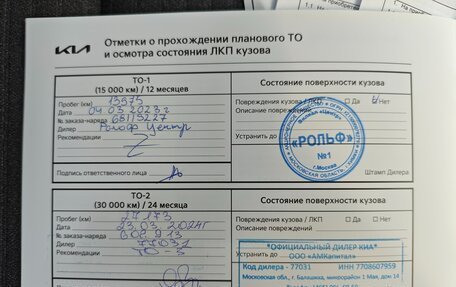 1.1 На приобрет
KIA
Отметки о прохождении планового ТО
и осмотра состояния ЛКП кузова
ТО-1
(15 000 км) / 12 месяцев
Состояние поверхности кузова
Пробег (км) 13975
Дата 04.03.2023г
№ заказа-наряда 68113227
Дилер Рольф Центр
Рекомендации
Подпись ответственного лица
Повреждения кузова / ЛКП Да Нет
Описание повреждений
Устранить до
Филиал «Центр»
«РОЛЬФ»
№1
г.Москва
Штамп Дилера
ТО-2
(30 000 км) / 24 месяца
Состояние поверхности кузова
Пробег (км) 27173
Дата 23.03.2024г
№ заказа-наряда 608913
Дилер 77031
Рекомендации ТО-3
Повреждения кузова / ЛКП Да Нет
Описание повреждений
Устранить до
*ОФИЦИАЛЬНЫЙ ДИЛЕР КИА*
ООО «АМКапитал»
Код дилера - 77031 ИНН 7708607959
Московская обл., г. Балашиха, микрорайон 1 Мая, дом 14